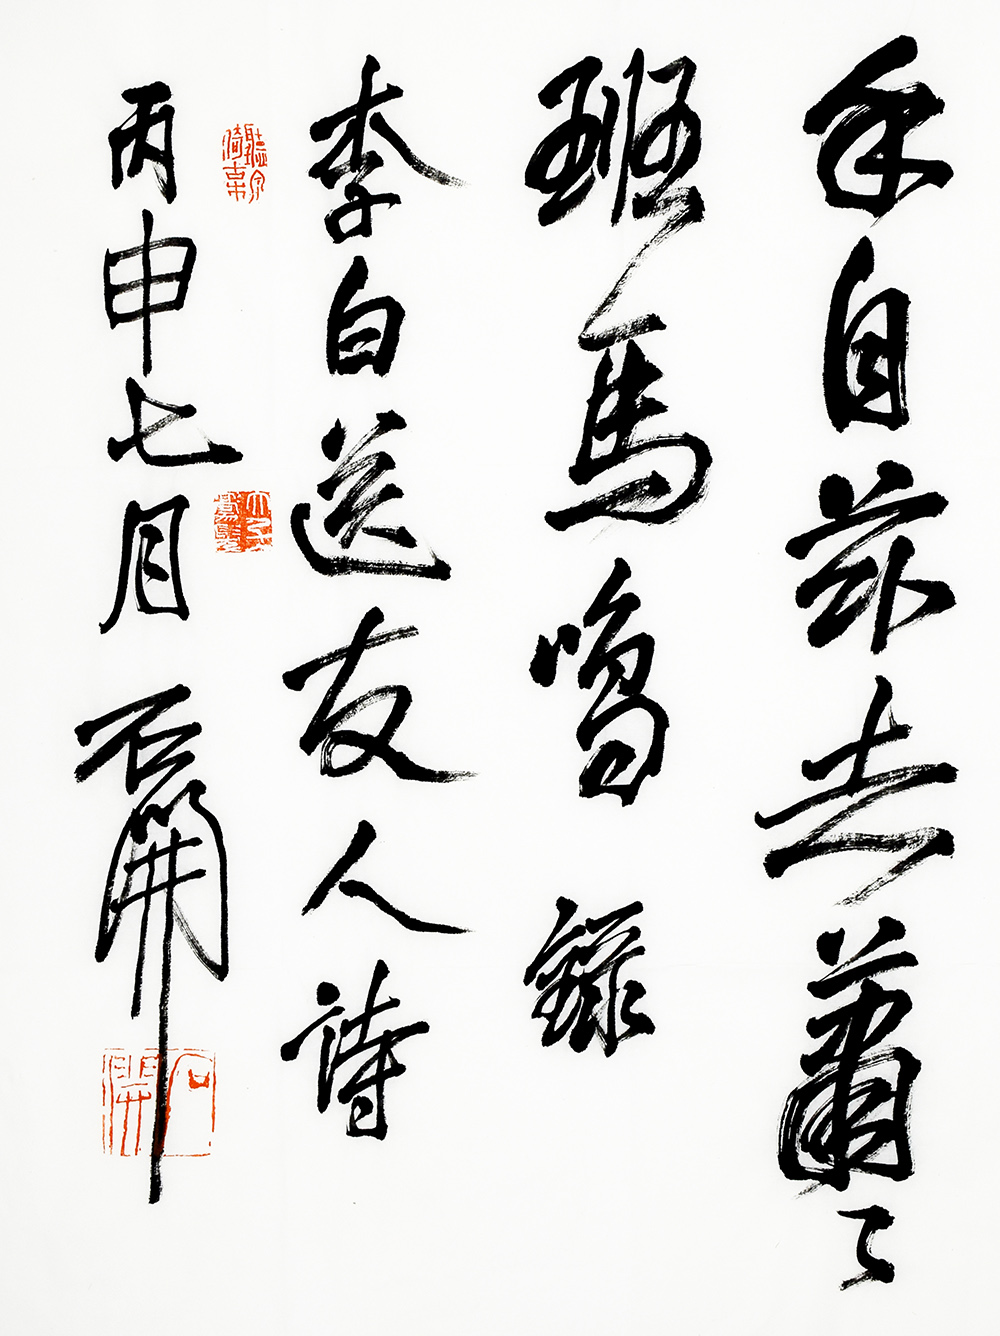 手自茲去蕭々
班馬鳴 錄
李白送友人詩
丙申七月 石開
石開